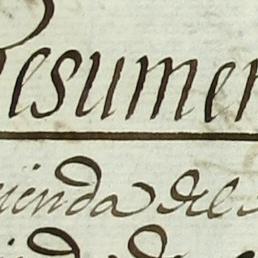 Resumen
ienda del